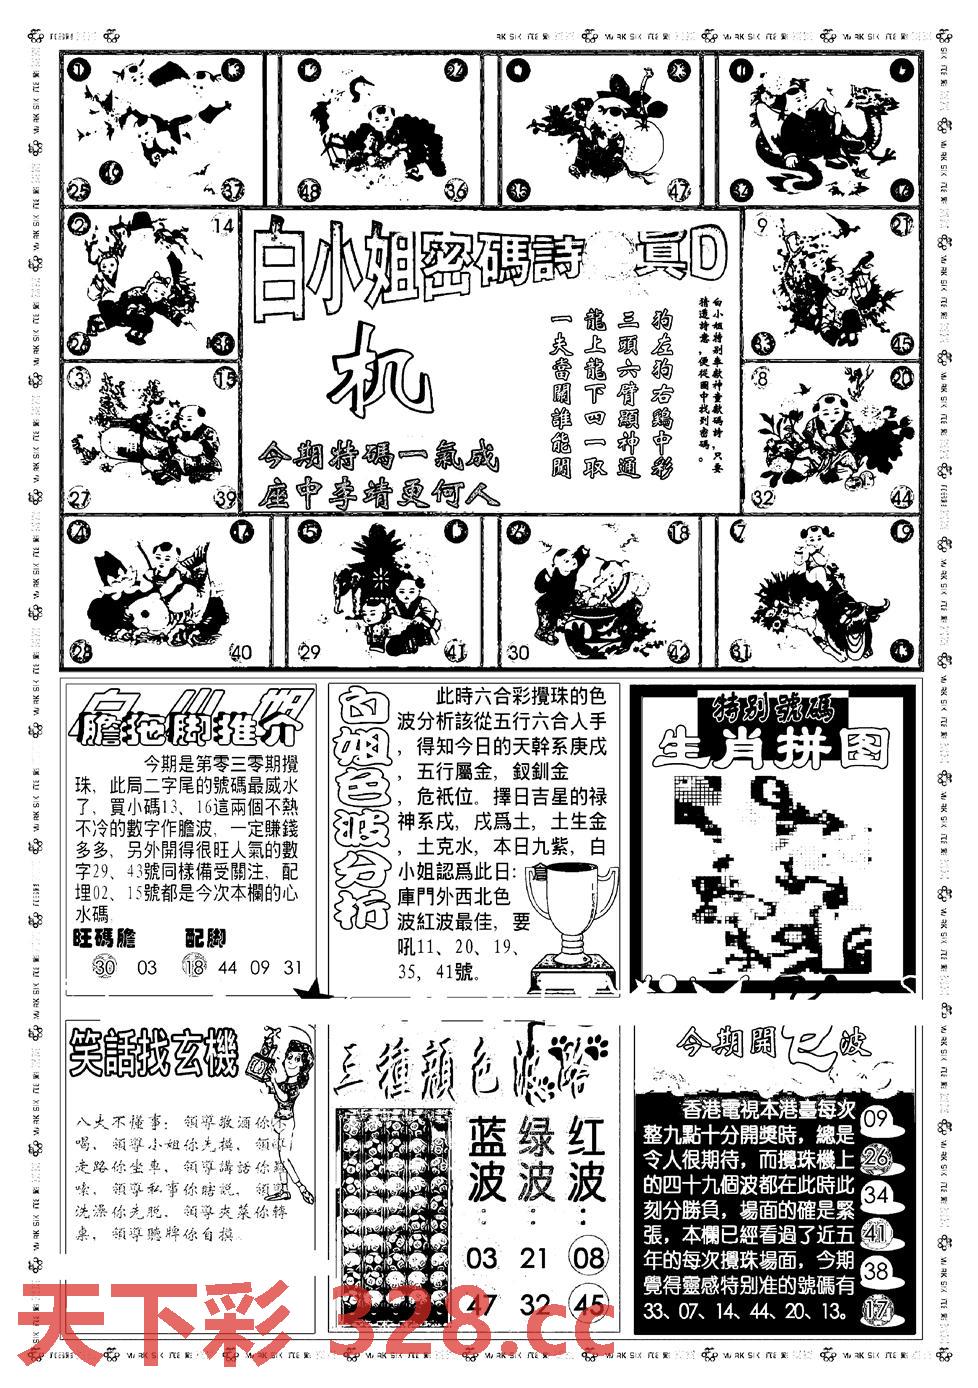 25
37
48
36
35
47
2
14
9
21
33
45
3
15
8
20
27
39
32
44
28
40
5
29
41
18
30
42
7
19
31
白小姐密碼詩
真D
机
今期特碼一氣成
座中李靖更何人
白小姐特别奉獻神童獻碼詩,只要
猜透詩意,便從圖中找到密碼。
狗左狗右鷄中彩
三頭六臂顯神通
龍上龍下四一取
一夫當關誰能闖
膽拖脚推介
今期是第零三零期攪
珠,此局二字尾的號碼最威水
了,買小碼13、16這兩個不熱
不冷的數字作膽波,一定賺錢
多多,另外開得很旺人氣的數
字29、43號同樣備受關注,配
埋02、15號都是今次本欄的心
水碼
旺碼膽 配脚
30 03 18 44 09 31
白姐色波分析
此時六合彩攪珠的色
波分析該從五行六合人手
,得知今日的天幹系庚戌
,五行屬金,釵釧金
,危衹位。擇日吉星的禄
神系戊,戌爲土,土生金
,土克水,本日九紫,白
小姐認爲此日:倉
庫門外西北色
波紅波最佳,要
吼11、20、19、
35、41號。
特别號碼
生肖拼图
笑話找玄機
八大不懂事:領導敬酒你不
喝,領導小姐你先摸,領導
走路你坐車,領導講話你羅
嗦,領導私事你瞎説,領導
洗澡你先脱,領導夾菜你轉
桌,領導聽牌你自摸。
三種顔色波路
蓝波: 绿波: 红波:
03 21 08
47 32 45
今期開 波
香港電視本港臺每次
整九點十分開獎時,總是
令人很期待,而攪珠機上
的四十九個波都在此時此
刻分勝負,場面的確是緊
張,本欄已經看過了近五
年的每次攪珠場面,今期
覺得靈感特别准的號碼有
33、07、14、44、20、13。
09
26
34
41
38
17
天下彩 328.cc